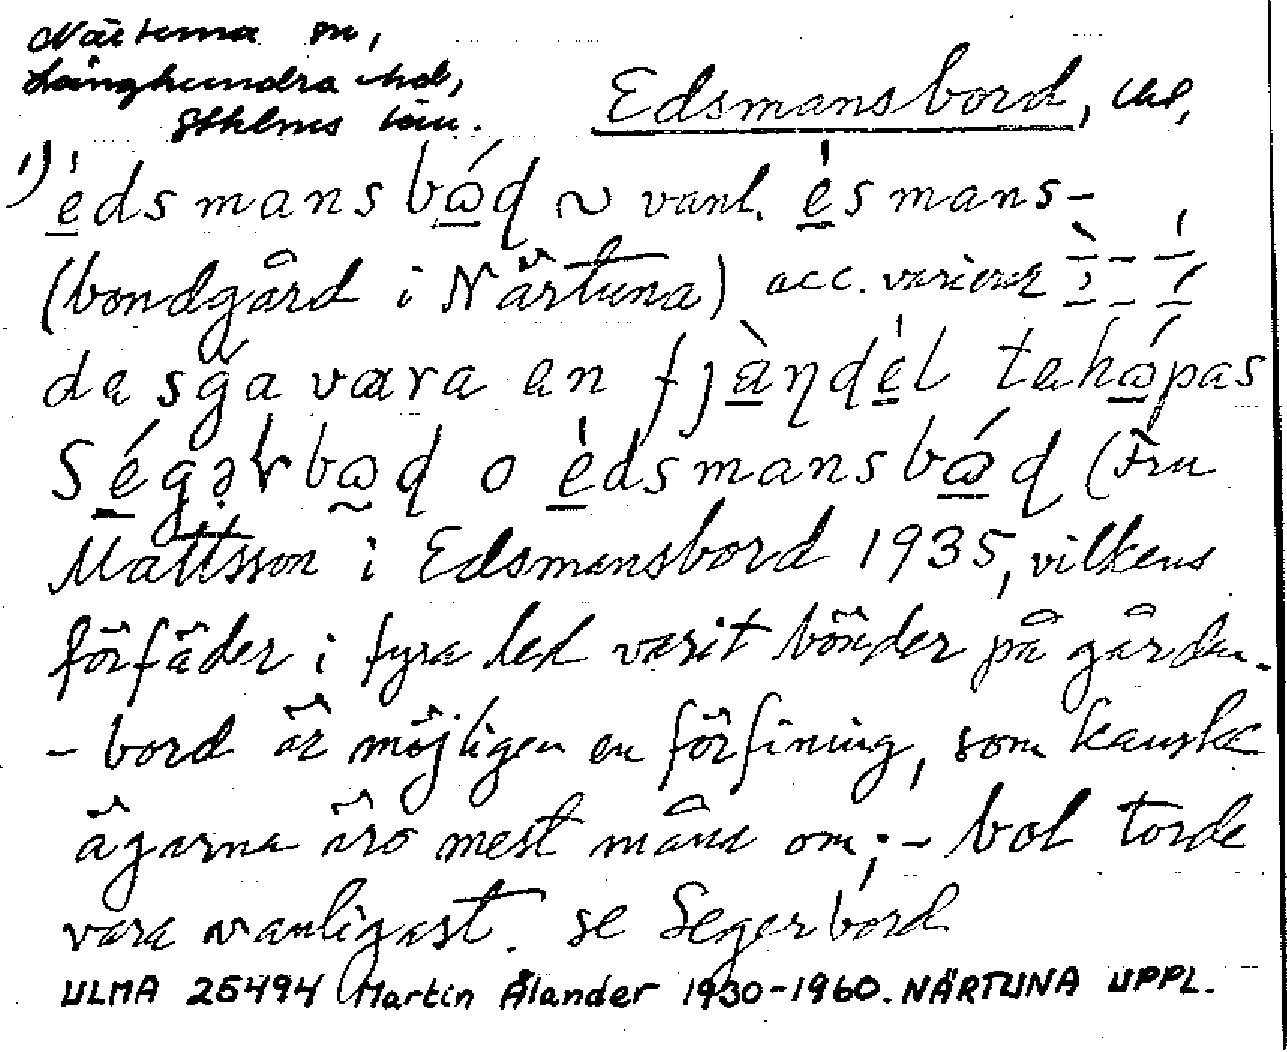 Närtuna sn,
Långhundra hd,
Sthlms län.
Edsmansbord, Upl,
1) èdsmansbω´ɖ ~ vanl. èsmans-
(bondgård i Närtuna) acc. varierar
da sga væra en fjæ̀ɳɖèl tehω´pas
Ségərbωɖ o èdsmansbω´ɖ (Fru
Mattsson i Edsmansbord 1935, vilkens
förfäder i fyra led varit bönder på gården.
- bord är möjligen en förfining, som kanske
ägarna äro mest måna om; - bol torde
vara vanligast. se Segerbord
ULMA 26494 Martin Ålander 1930-1960. NÄRTUNA UPPL.